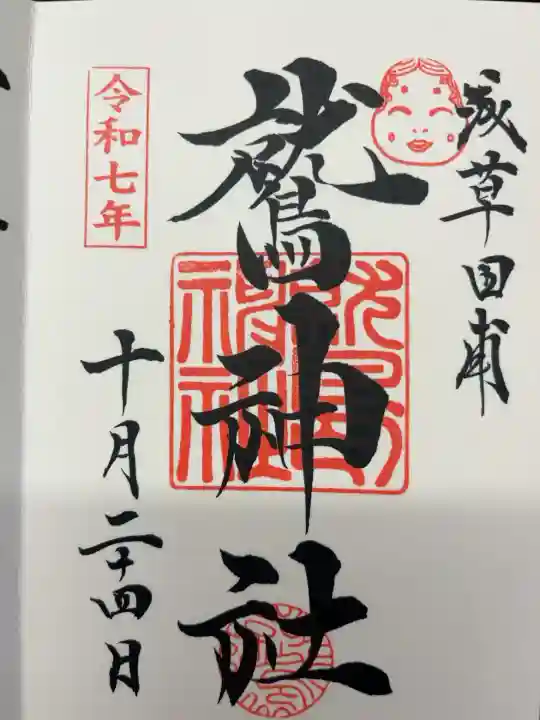 浅草田甫
鷲神社
令和七年
十月二十四日